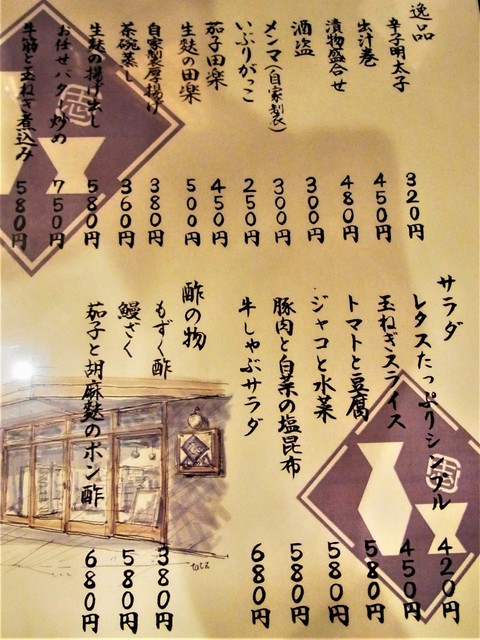 逸品
辛子明太子 320円
出汁巻 450円
漬物盛合せ 480円
酒盗 300円
メンマ(自家製) 300円
いぶりがっこ 250円
茄子田楽 450円
生麸の田楽 500円
自家製厚揚げ 380円
茶碗蒸し 360円
生麸の揚げ出し 580円
お任せバター炒め 750円
牛筋と玉ねぎ煮込み 580円
サラダ
レタスたっぷりシンプル 420円
玉ねぎスライス 450円
トマトと豆腐 580円
ジャコと水菜 580円
豚肉と白菜の塩昆布 580円
牛しゃぶサラダ 680円
酢の物
もずく酢 380円
鰻ざく 580円
茄子と胡麻麸のポン酢 680円